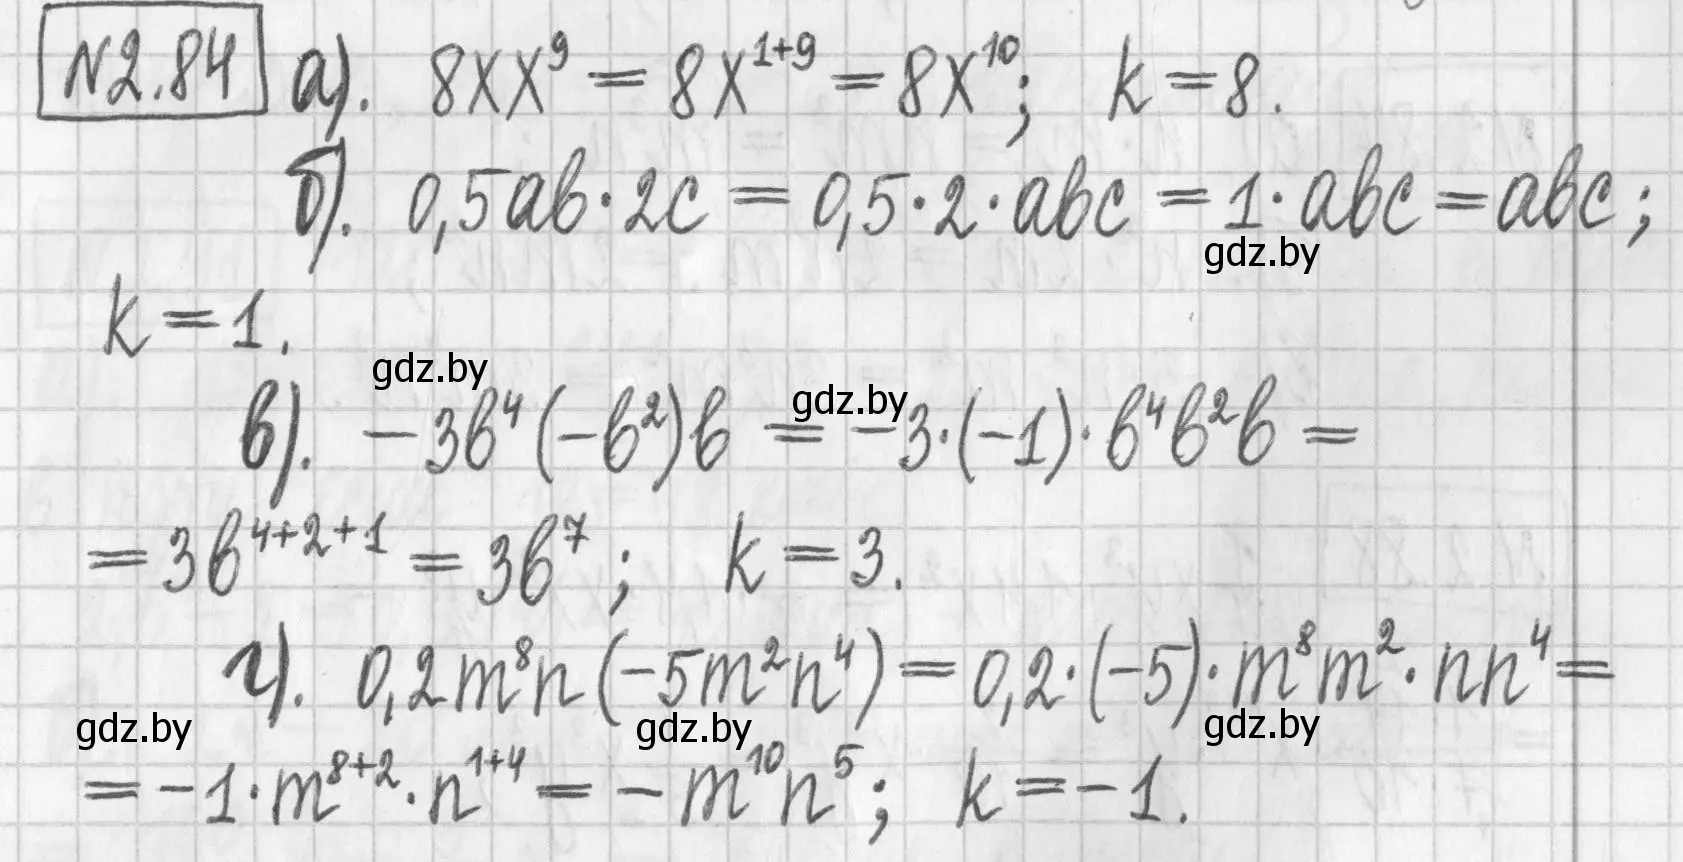 №2.84 а). 8xx⁹ = 8x¹⁺⁹ = 8x¹⁰; k = 8.
б). 0,5ab · 2c = 0,5 · 2 · abc = 1 · abc = abc;
gdz.by
k = 1.
gdz.by
gdz.by
в). −3b⁴(−b²)b = −3·(−1)·b⁴b²b =
= 3b⁴⁺²⁺¹ = 3b⁷; k = 3.
г). 0,2m⁸n(−5m²n⁴) = 0,2·(−5)·m⁸m²·nn⁴ =
gdz.by gdz.by gdz.by
= −1·m⁸⁺²·n¹⁺⁴ = −m¹⁰n⁵; k = −1.